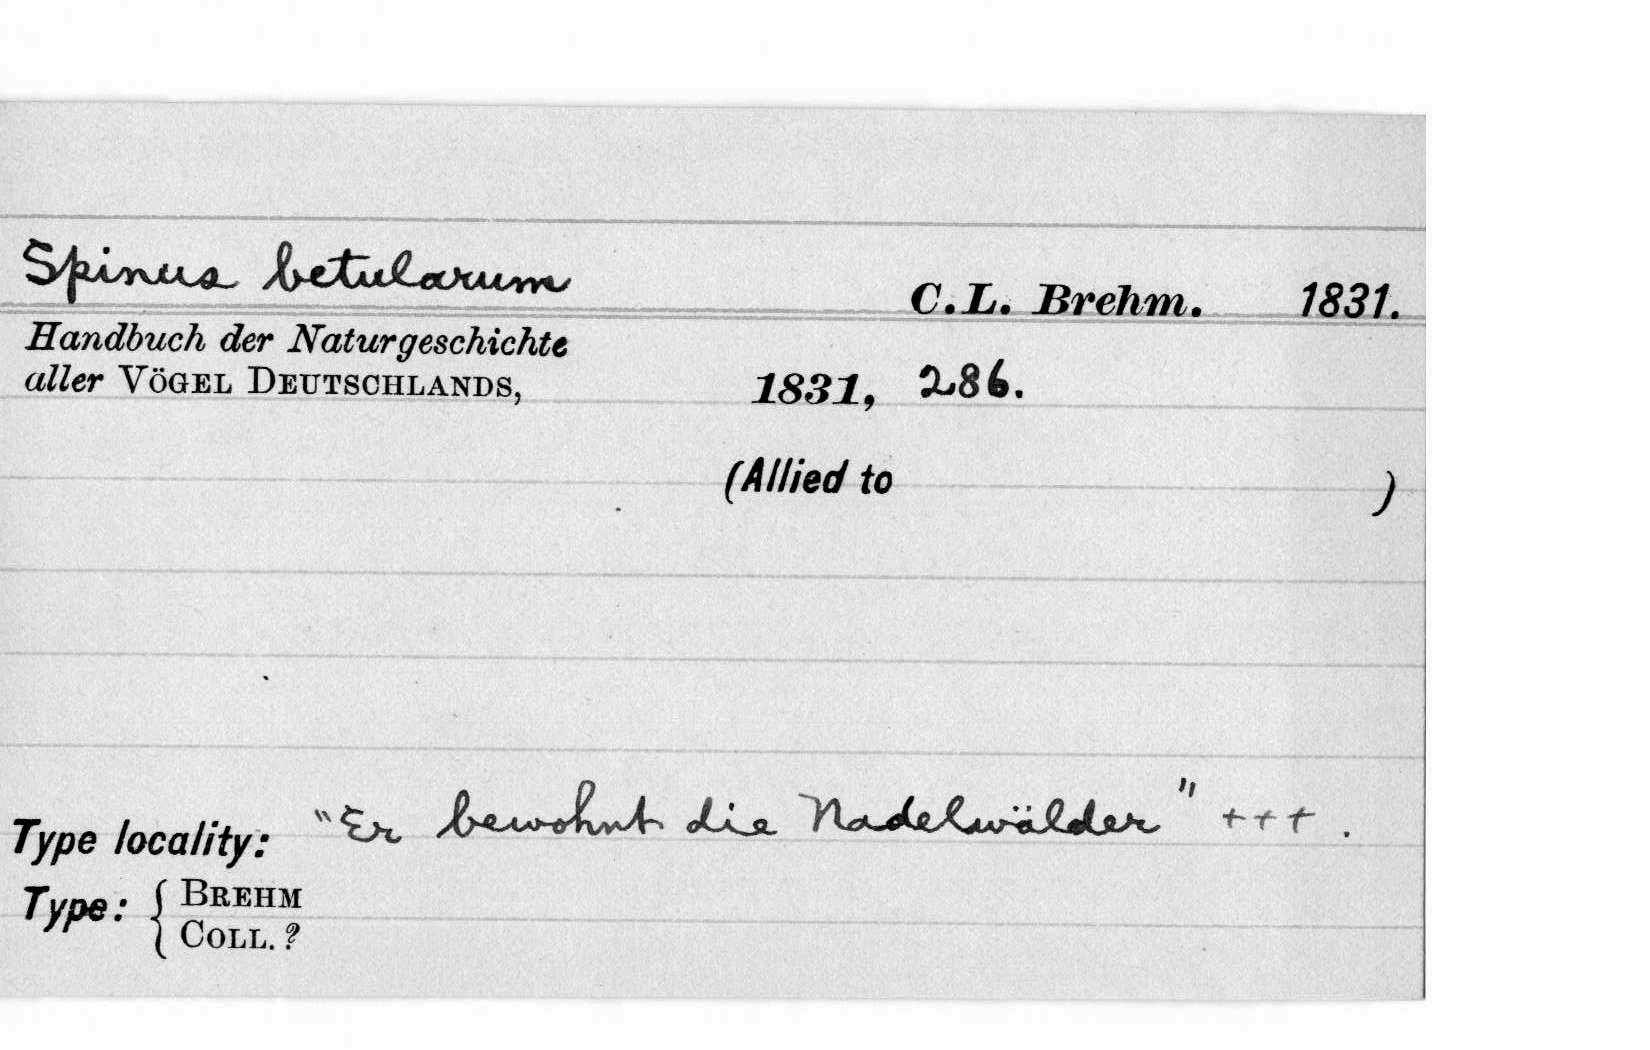 Spinus betularum C.L. Brehm. 1831.
Handbuch der Naturgeschichte
aller VÖGEL DEUTSCHLANDS, 1831, 286.
(Allied to )
Type locality: "Er bewohnt die Nadelwälder" +++.
Type: { BREHM
COLL. ?